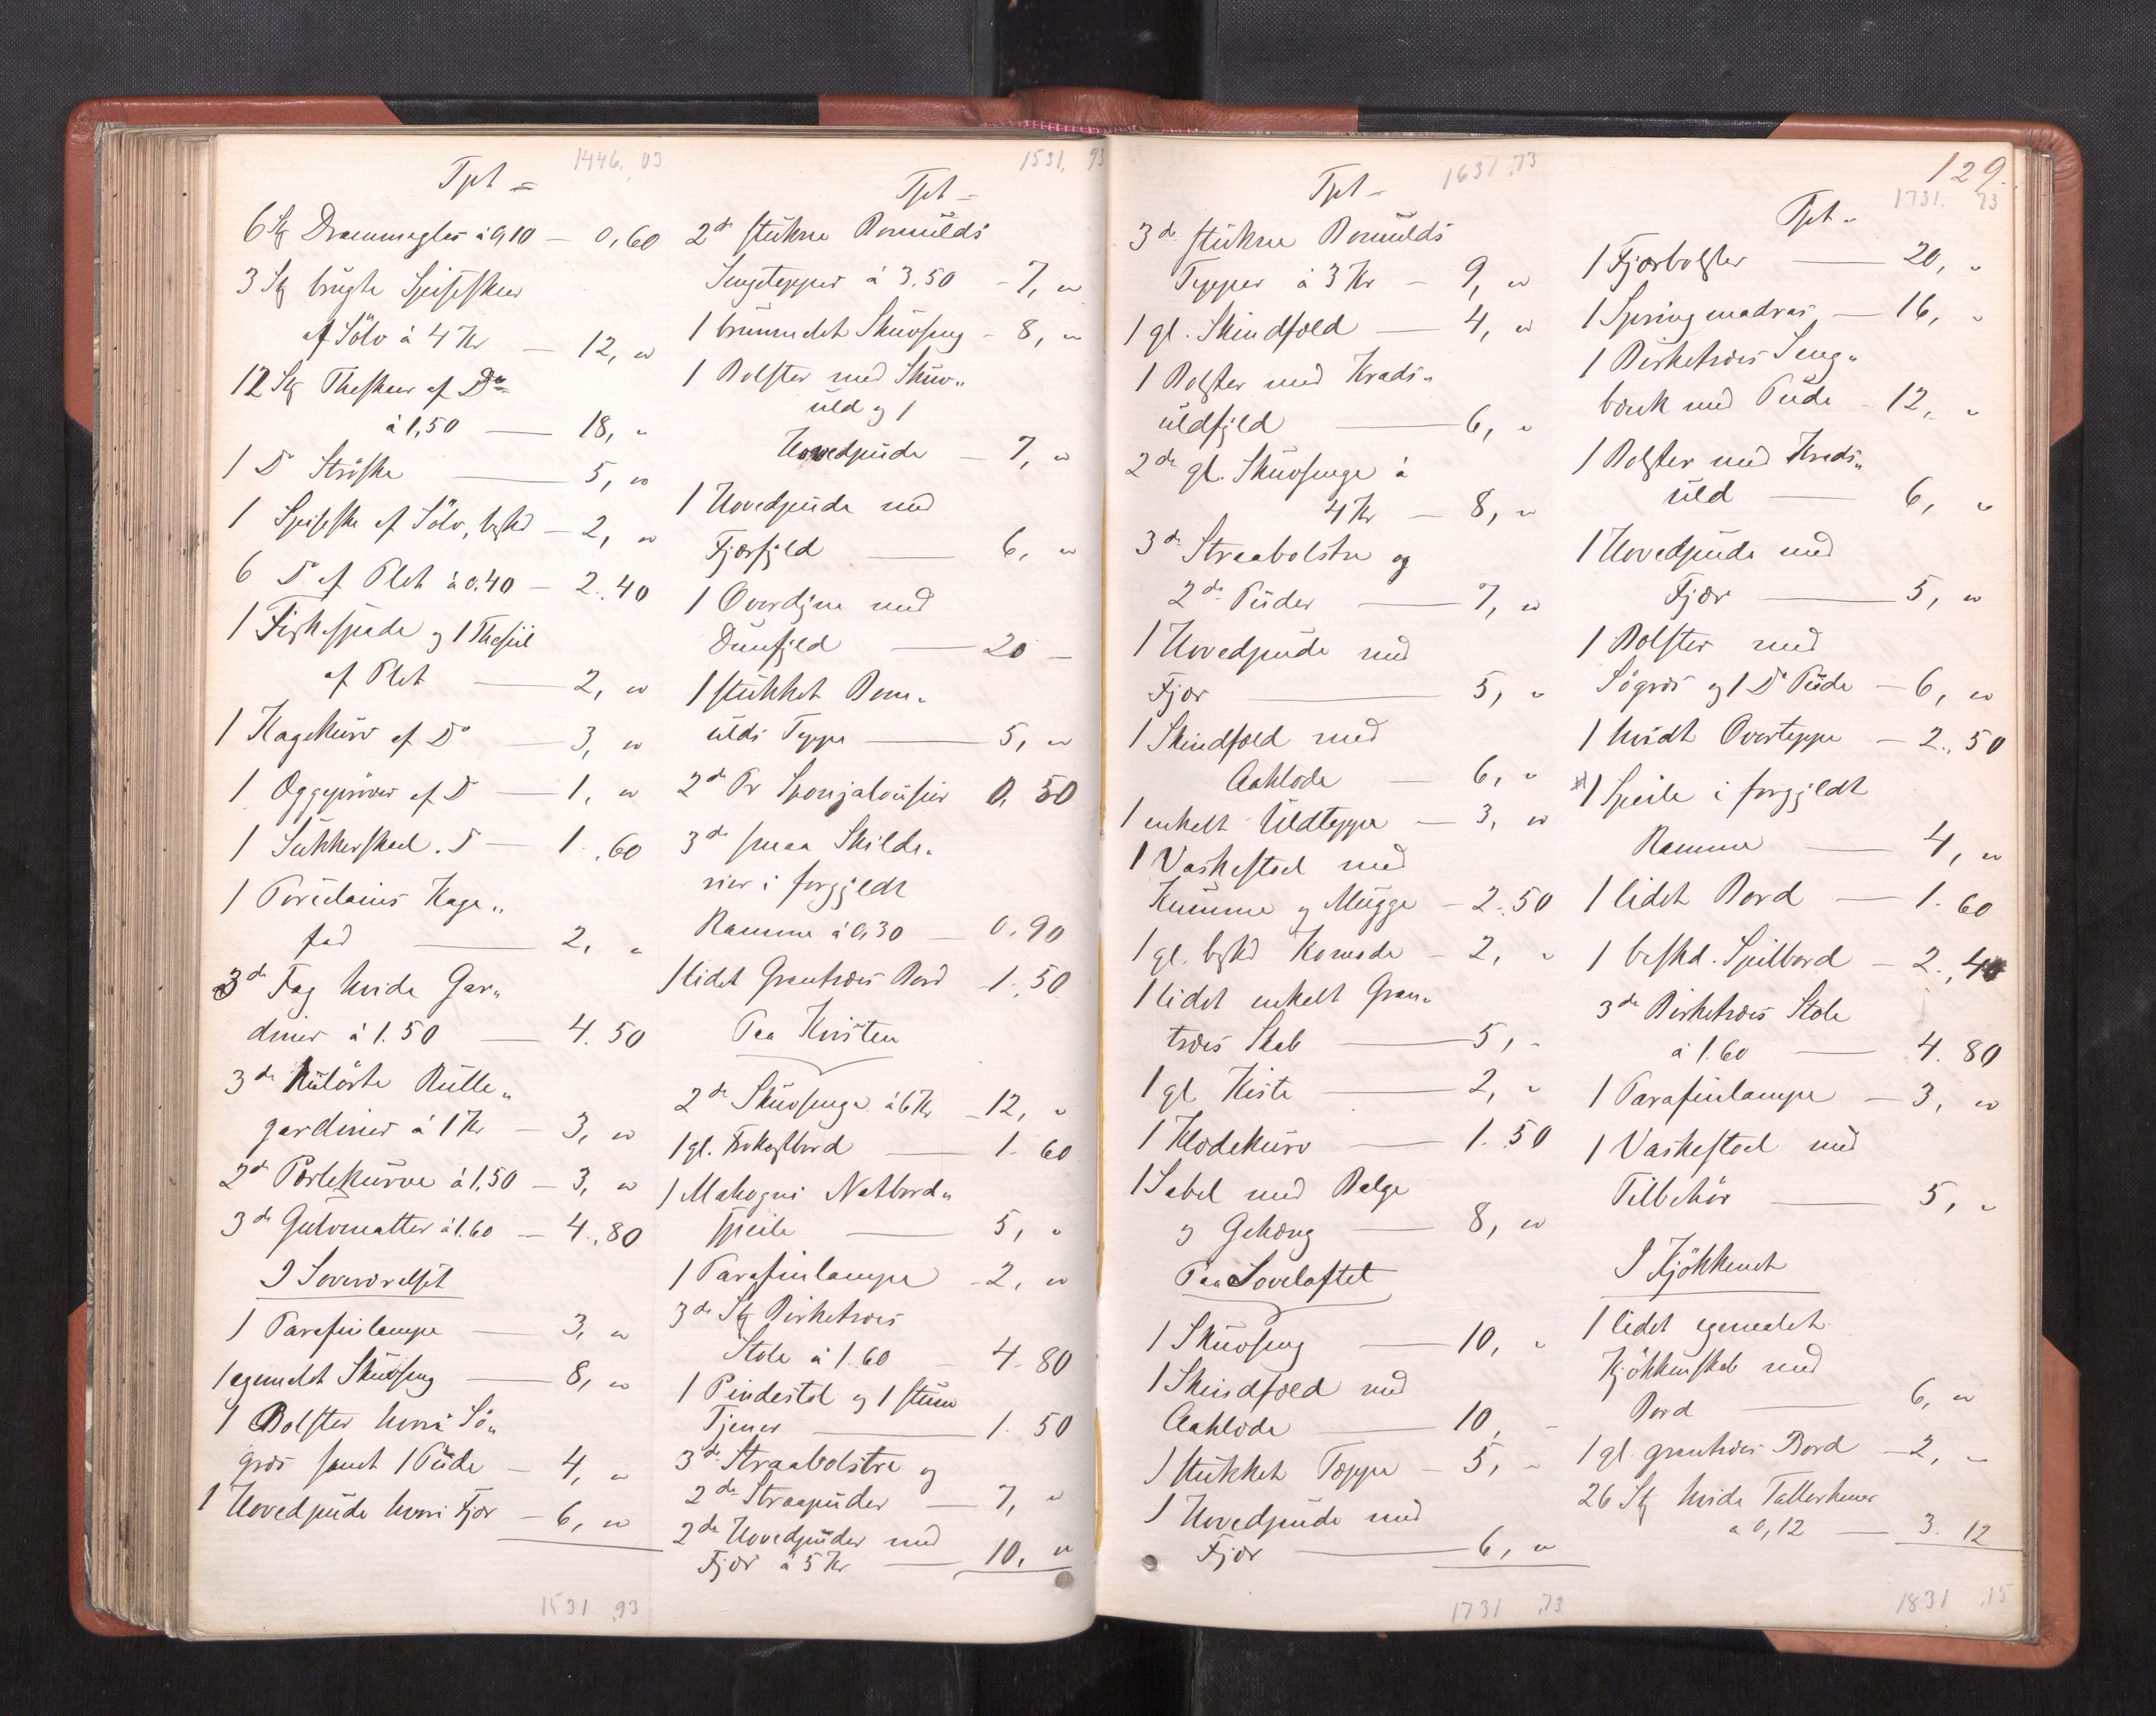 Tpt =
1446, 03
6 Stk Drammeglas à 0,10 — 0,60
3 Stk brugte Spiseskeer
af Sölv à 4 Kr — 12, "
12 Stk Theskeer af Do
à 1,50 — 18, "
1 Do Ströske — 5, "
1 Spiseske af Sölv, beskd — 2, "
6 Do af Plet à 0,40 — 2.40
1 Fiskespade og 1 Thesiil
af Plet — 2, "
1 Kagekurv af Do — 3, "
1 Æggeprøver af Do — 1, "
1 Sukkerskeel. Do — 1.,60
1 Porcelains Kage„
fad — 2, "
3de Fag hvide Gar„
diner à 1.50 — 4.50
3de kulörte Rulle„
gardiner à 1 Kr — 3, "
2de Perlekurve à 1,50 — 3, "
3de Gulvmatter à 1.60 — 4.,80
I Soveværelset
1 Parafinlampe — 3, "
1 egemalet Skuvseng — 8, "
1 Bolster hvori Sö„
græs samt 1 Pude — 4, "
1 Hovedpude hvori Fjær — 6, "
1531,93
1531, 93
Tpt =
2de stukne Bomulds
Sengetepper à 3.50 — 7, "
1 brunmalet Skuvseng — 8, "
1 Bolster med Skuv„
uld og 1
Hovedpude — 7, "
1 Hovedpude med
Fjærfyld — 6, "
1 Overdyne med
Dunfyld — 20 —
1 stukket Bom„
ulds Teppe — 5, "
2de Pr Sponjalousier 0, 50
3de smaa Skilde„
rier i forgyldt
Ramme à 0,30 — 0.90
1 lidet Grantræes Bord 1.,50
Paa Kvisten
2de Skuvsenge à 6 Kr — 12, "
1 gl. Frokostbord — 1. 60
1 Mahogni Natbord„
speile — 5, "
1 Parafinlampe — 2, "
3de Stk Birketræes
Stole à 1.60 — 4. 80
1 Pindestol og 1 stum
Tjener — 1. 50
3de Straabolstre og
2de Straapuder — 7, "
2de Hovedpuder med
Fjær à 5 Kr — 10, "
Tpt =
1631,73
3de stukne Bomulds
Tepper à 3 Kr — 9, "
1 gl. Skindfæld — 4, "
1 Bolster med Krads„
uldfyld — 6, "
2de gl. Skuvsenge à
4 Kr — 8, "
3de Straabolstre og
2de Puder — 7, "
1 Hovedpude med
Fjær — 5, "
1 Skindfæld med
Aaklæde — 6, "
1 enkelt Uldteppe — 3, "
1 Vaskestol med
Kumme og Mugge — 2.50
1 gl. beskd Komode — 2, "
1 lidet enkelt Gran„
træes Skab — 5, "
1 gl Kiste — 2, "
1 Klædekurv — 1.50
1 Sabel med Balge
og Gehæng — 8, "
Paa Soveloftet
1 Skuvseng — 10, "
1 Skindfæld med
Aaklæde — 10, "
1 stukket Tæppe — 5, "
1 Hovedpude med
Fjær — 6, "
1731,73
129.
1731. 73
Tpt =
1 Fjærbolster — 20, "
1 Springmadras — 16, "
1 Birketræes Seng„
bænk med Pude — 12, "
1 Bolster med Krads„
uld — 6, "
1 Hovedpude med
Fjær — 5, "
1 Bolster med
Sögræs og 1 Do Pude — 6, "
1 hvidt Overteppe — 2., 50
1 Speile i forgyldt
Ramme — 4, "
1 lidet Bord — 1. 60
1 beskd. Spilbord — 2., 40
3de Birketræes Stole
à 1.60 — 4. 80
1 Parafinlampe — 3, "
1 Vaskestol med
Tilbehör — 5, "
I Kjökkenet
1 lidet egemalet
Kjökkenskab med
Bord — 6, "
1 gl. grantræes Bord — 2, "
26 Stk hvide Tallerkener
a 0,12 — 3. 12
1831,15